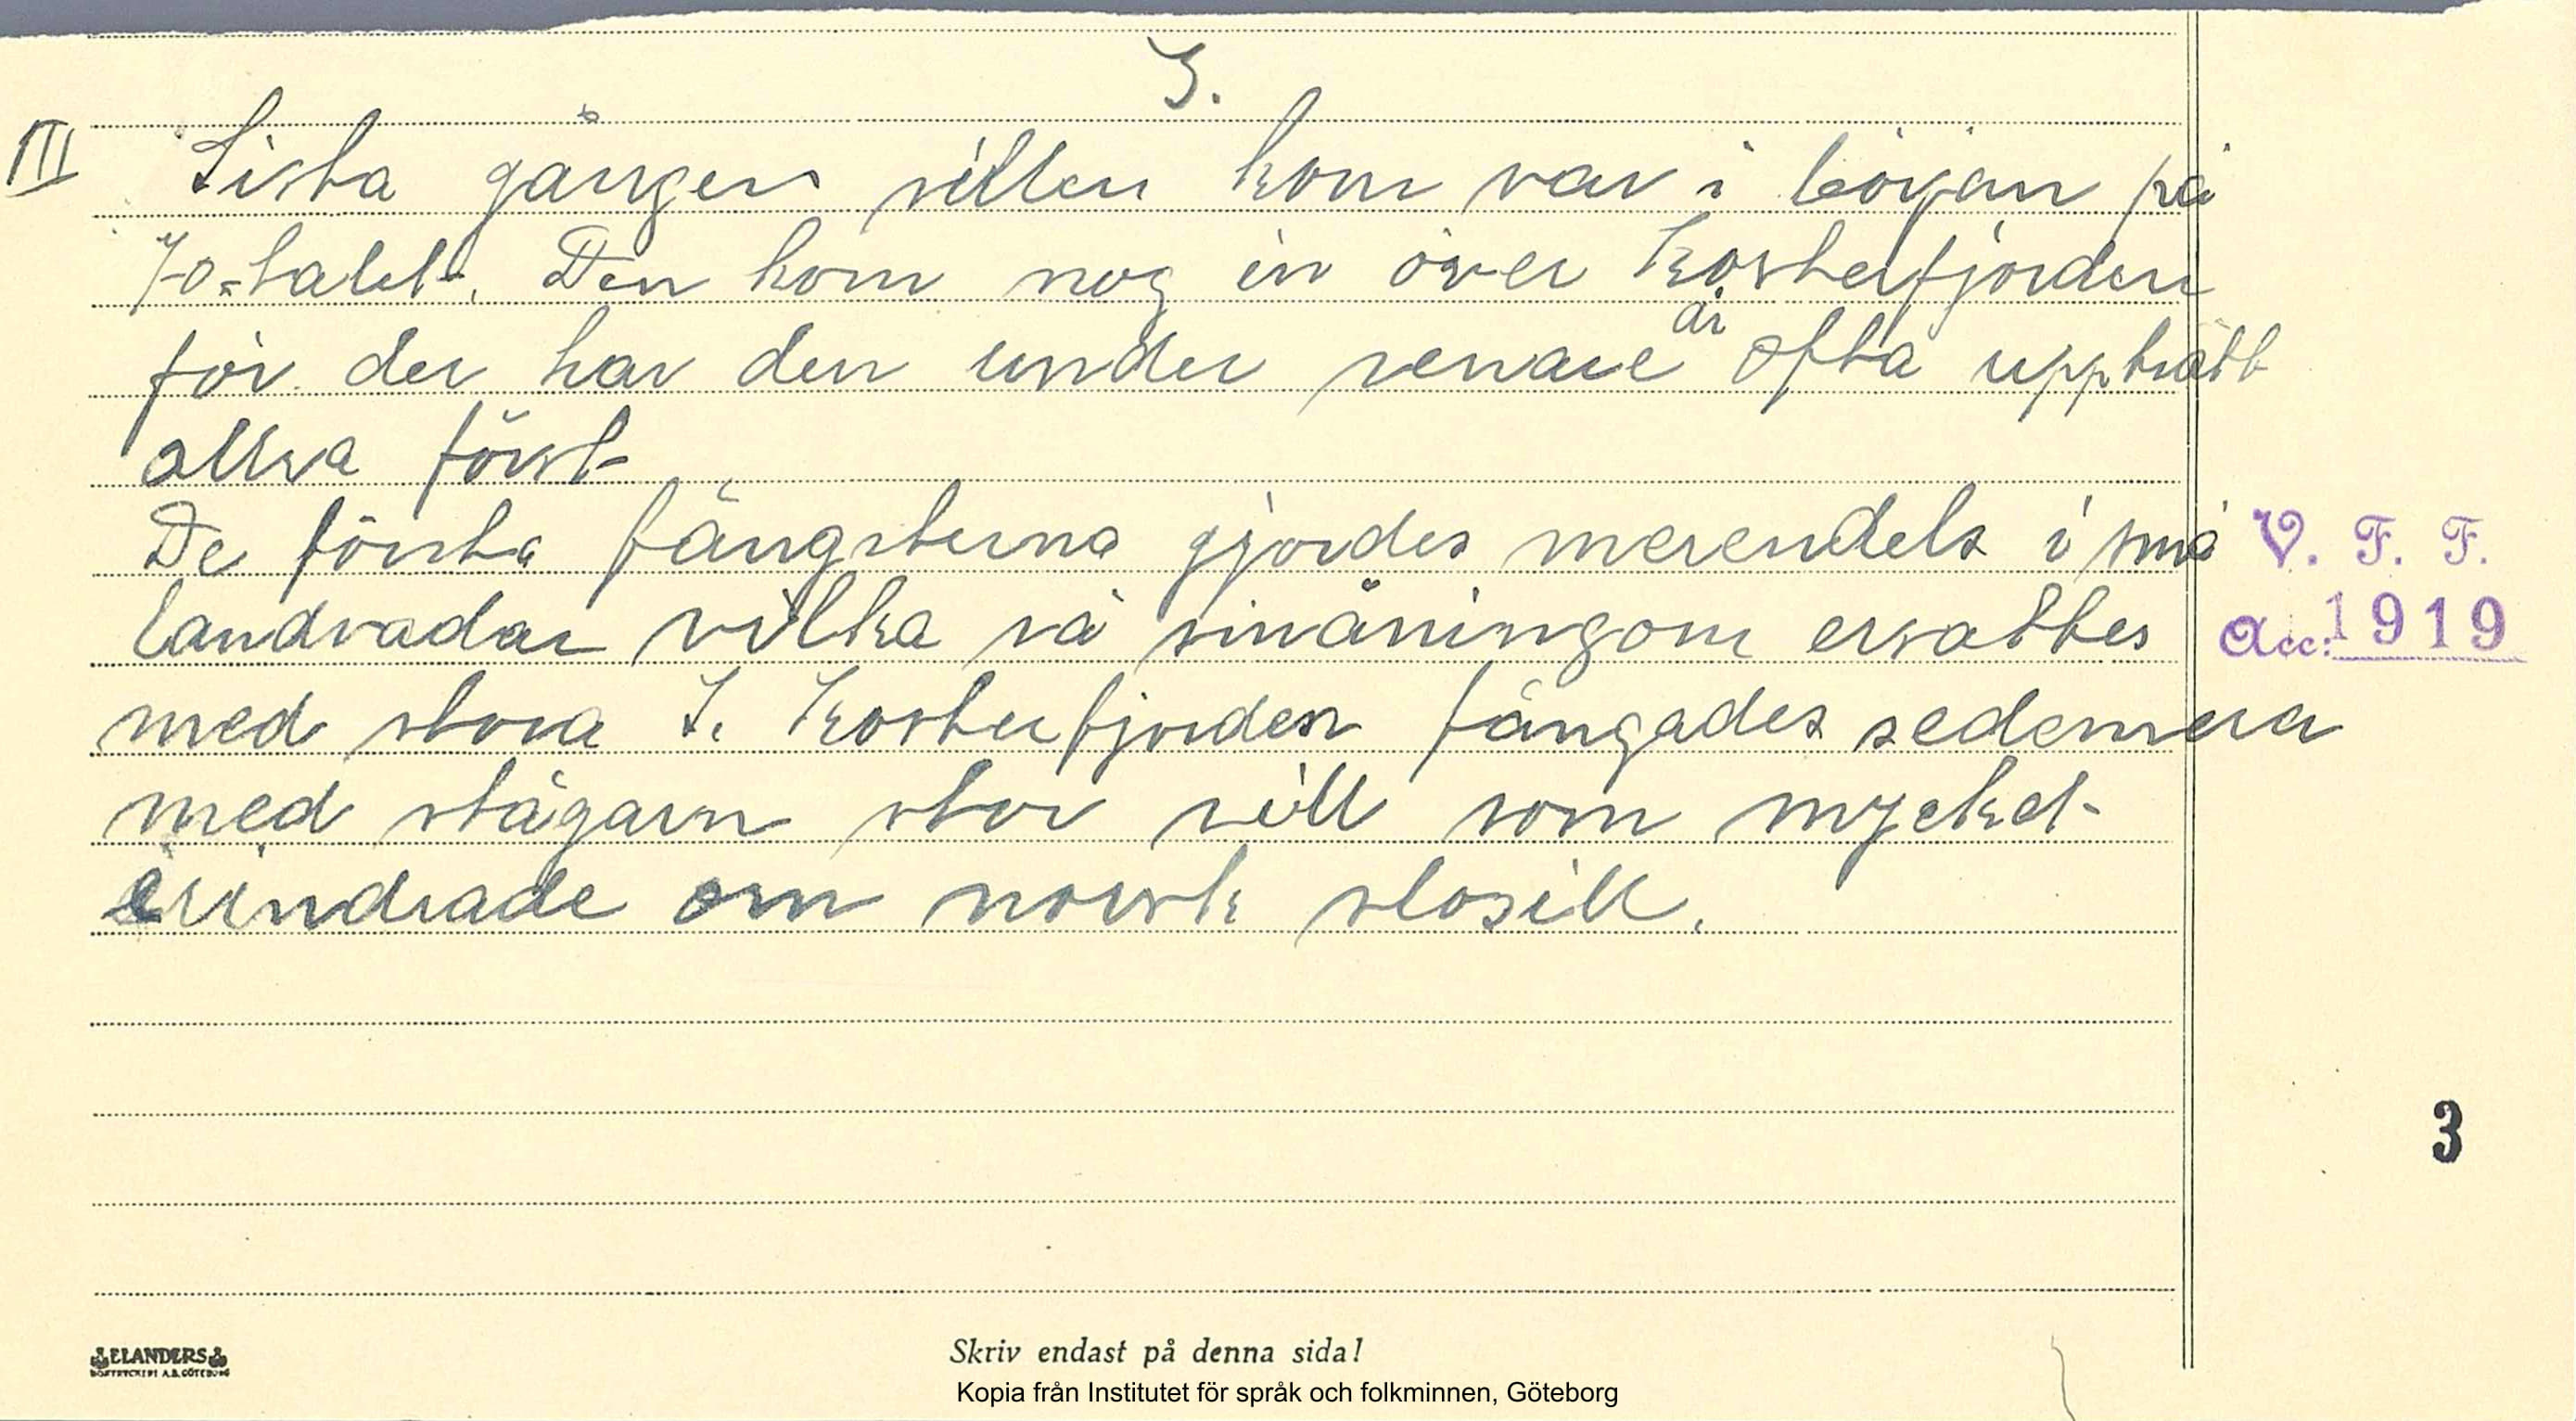 3.
III Sista gången sillen kom var i början på
70-talet. Den kom nog in över Kosterfjorden
för der har den under senare år ofta uppträtt
allra först
De första fångsterna gjordes merendels i små
landvadar vilka så småningom ersattes
med stora I. Kosterfjorden fångades sedemera
med stågarn stor sill som mycket
erindrade om norsk slosill.
V. F. F.
Acc: 1919
3
ELANDERS
BOKTRYCKERI A.B. GÖTEBORG
Skriv endast på denna sida!
Kopia från Institutet för språk och folkminnen, Göteborg